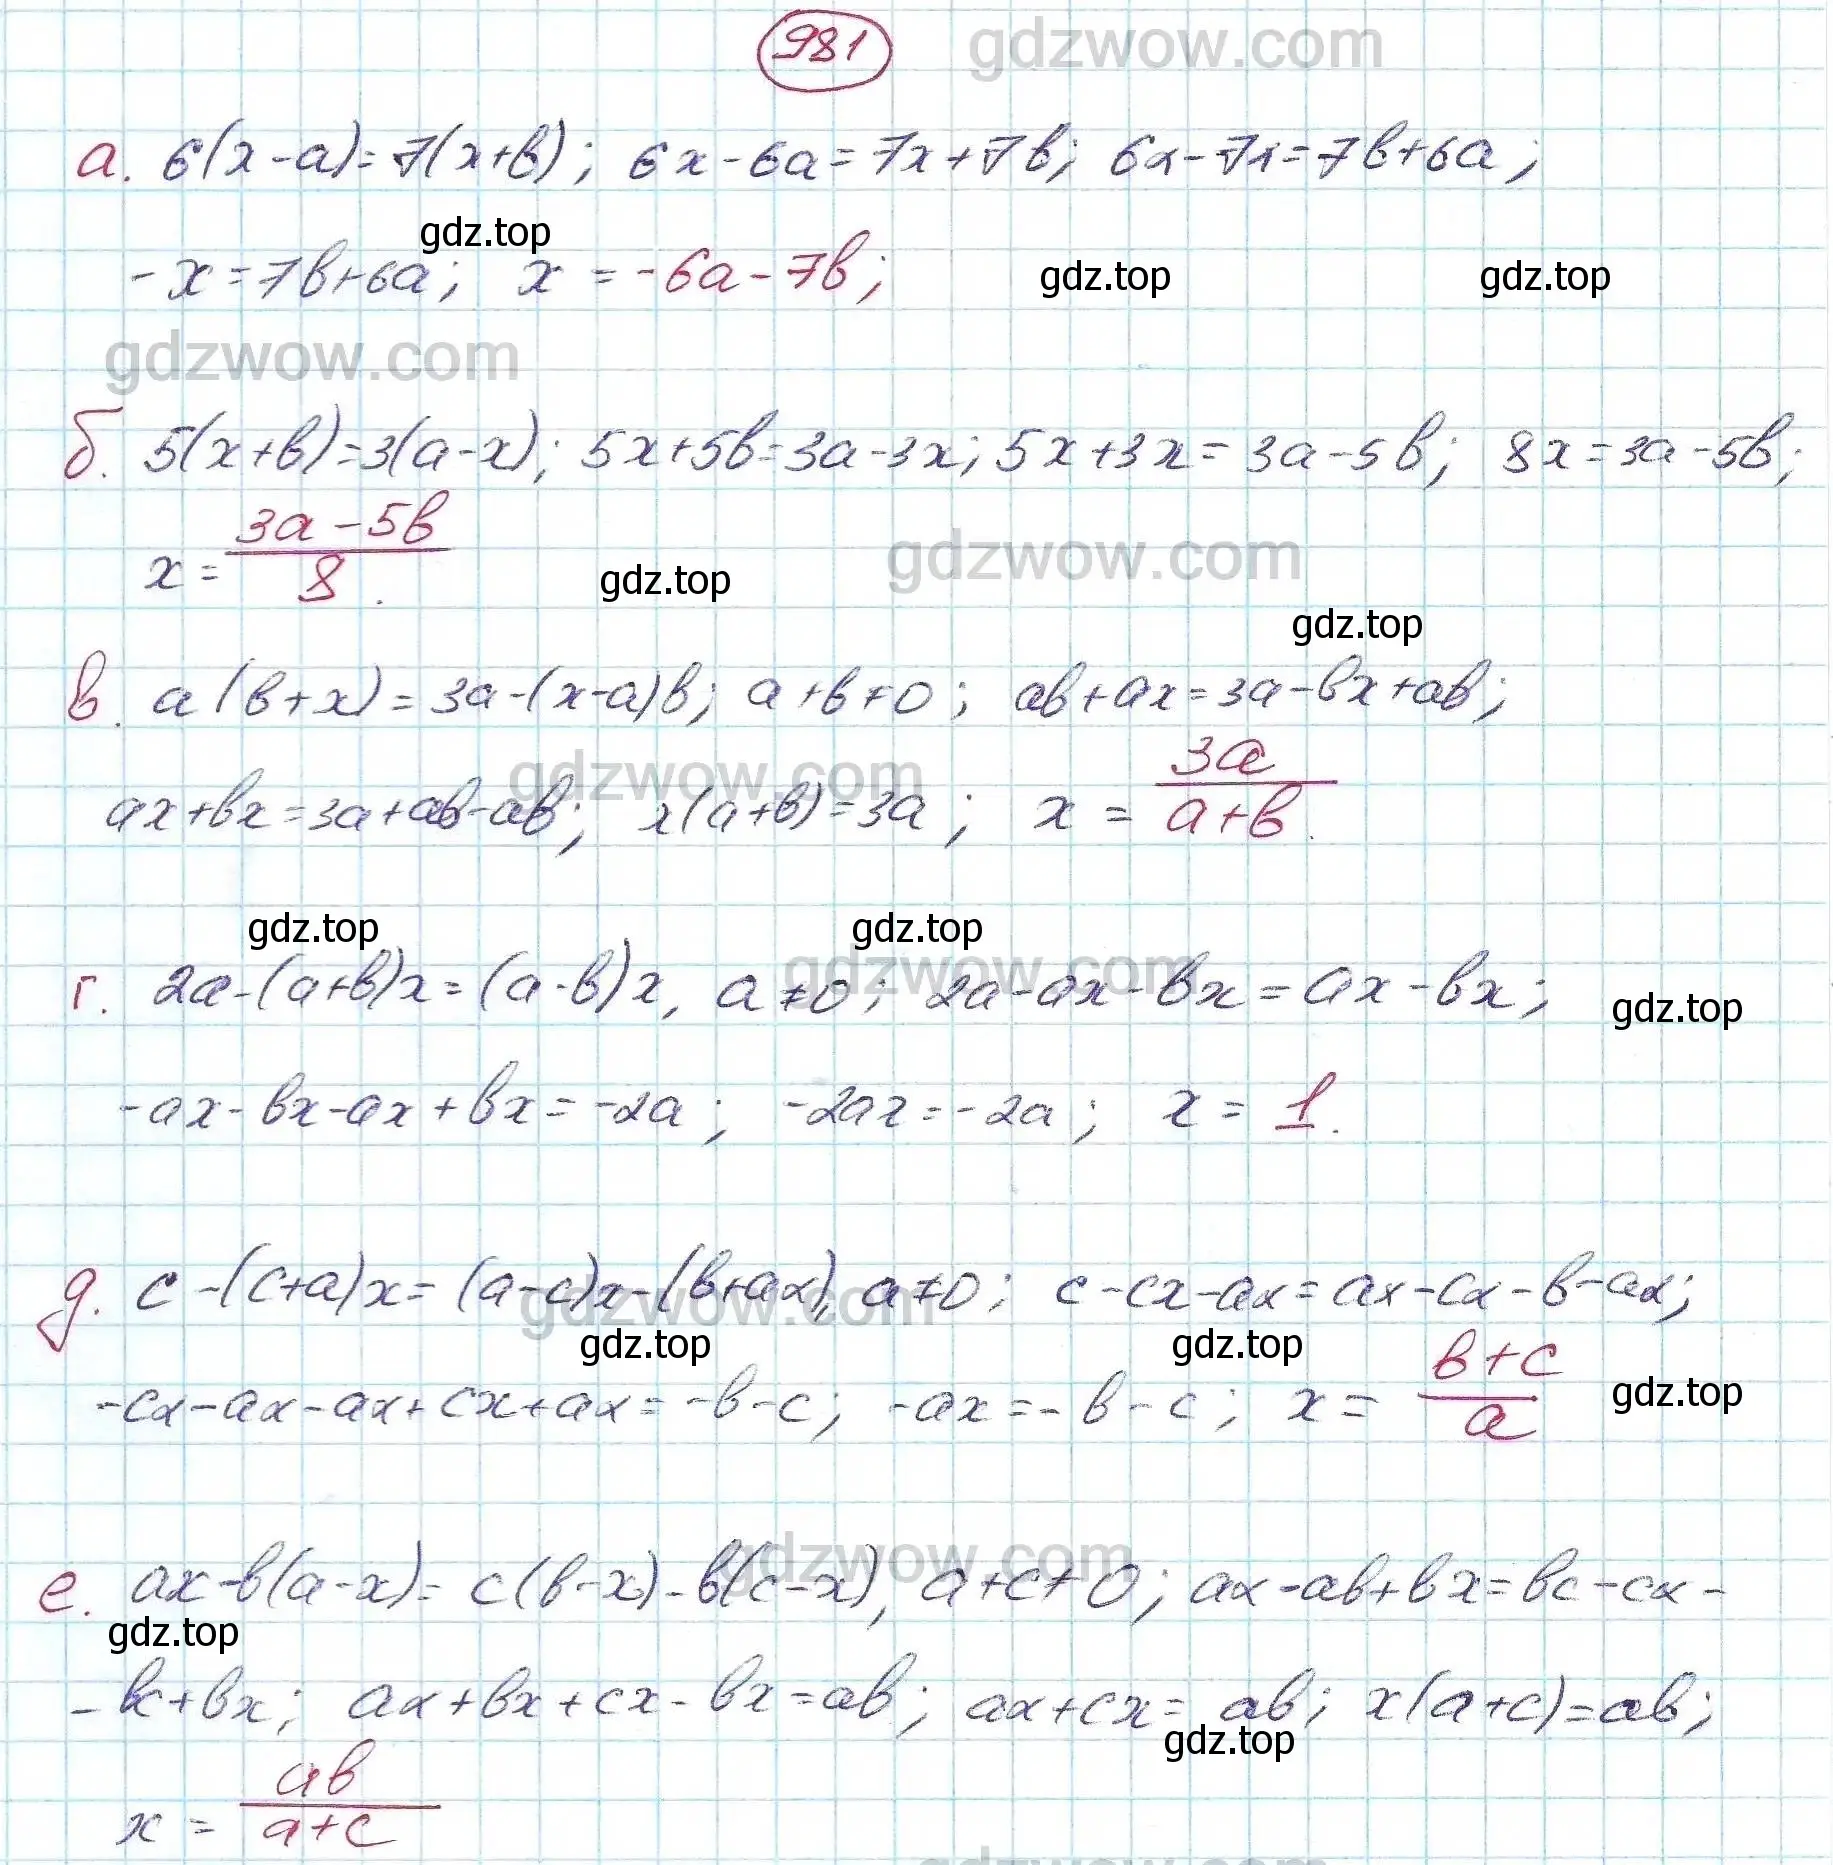 981
gdzwow.com
а. 6(x-a)=7(x+b); 6x-6a=7x+7b; 6x-7x=7b+6a;
gdz.top
-x=7b+6a; x=-6a-7b;
gdz.top gdz.top
gdzwow.com
б. 5(x+b)=3(a-x); 5x+5b=3a-3x; 5x+3x=3a-5b; 8x=3a-5b;
x=\frac{3a-5b}{8}.
gdzwow.com
gdz.top
gdz.top
в. a(b+x)=3a-(x-a)b; a+b≠0; ab+ax=3a-bx+ab;
gdzwow.com
ax+bx=3a+ab-ab; x(a+b)=3a; x=\frac{3a}{a+b}.
gdz.top gdz.top
gdzwow.com
г. 2a-(a+b)x=(a-b)x, a≠0; 2a-ax-bx=ax-bx;
gdz.top
-ax-bx-ax+bx=-2a; -2ax=-2a; x=1.
д. c-(c+a)x=(a-c)x-(b+ax), a≠0; c-cx-ax=ax-cx-b-ax;
gdzwow.com
gdz.top gdz.top
gdz.top
-cx-ax-ax+cx+ax=-b-c; -ax=-b-c; x=\frac{b+c}{a}
gdzwow.com
е. ax-b(a-x)=c(b-x)-b(c-x), a+c≠0; ax-ab+bx=bc-cx-
gdz.top
-bc+bx; ax+bx+cx-bx=ab; ax+cx=ab; x(a+c)=ab;
gdz.top
x=\frac{ab}{a+c}
gdzwow.com